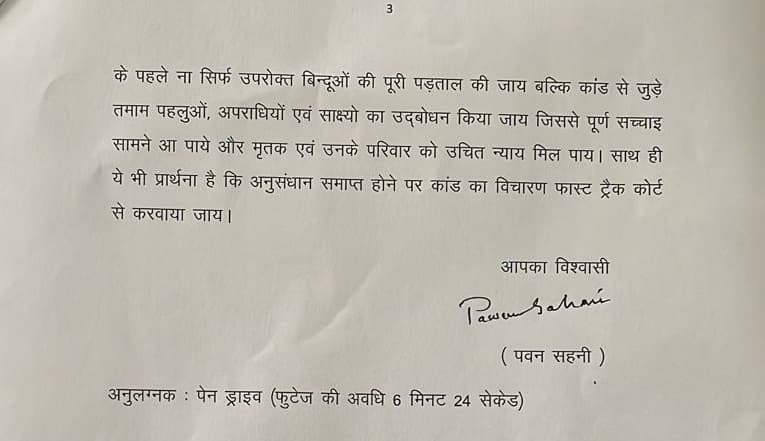 3
के पहले ना सिर्फ उपरोक्त बिन्दूओं की पूरी पड़ताल की जाय बल्कि कांड से जुड़े
तमाम पहलुओं, अपराधियों एवं साक्ष्यो का उद्बोधन किया जाय जिससे पूर्ण सच्चाइ
सामने आ पाये और मृतक एवं उनके परिवार को उचित न्याय मिल पाय। साथ ही
ये भी प्रार्थना है कि अनुसंधान समाप्त होने पर कांड का विचारण फास्ट ट्रैक कोर्ट
से करवाया जाय।
आपका विश्वासी
Pawan Sahani
( पवन सहनी )
अनुलग्नक : पेन ड्राइव (फुटेज की अवधि 6 मिनट 24 सेकेड)